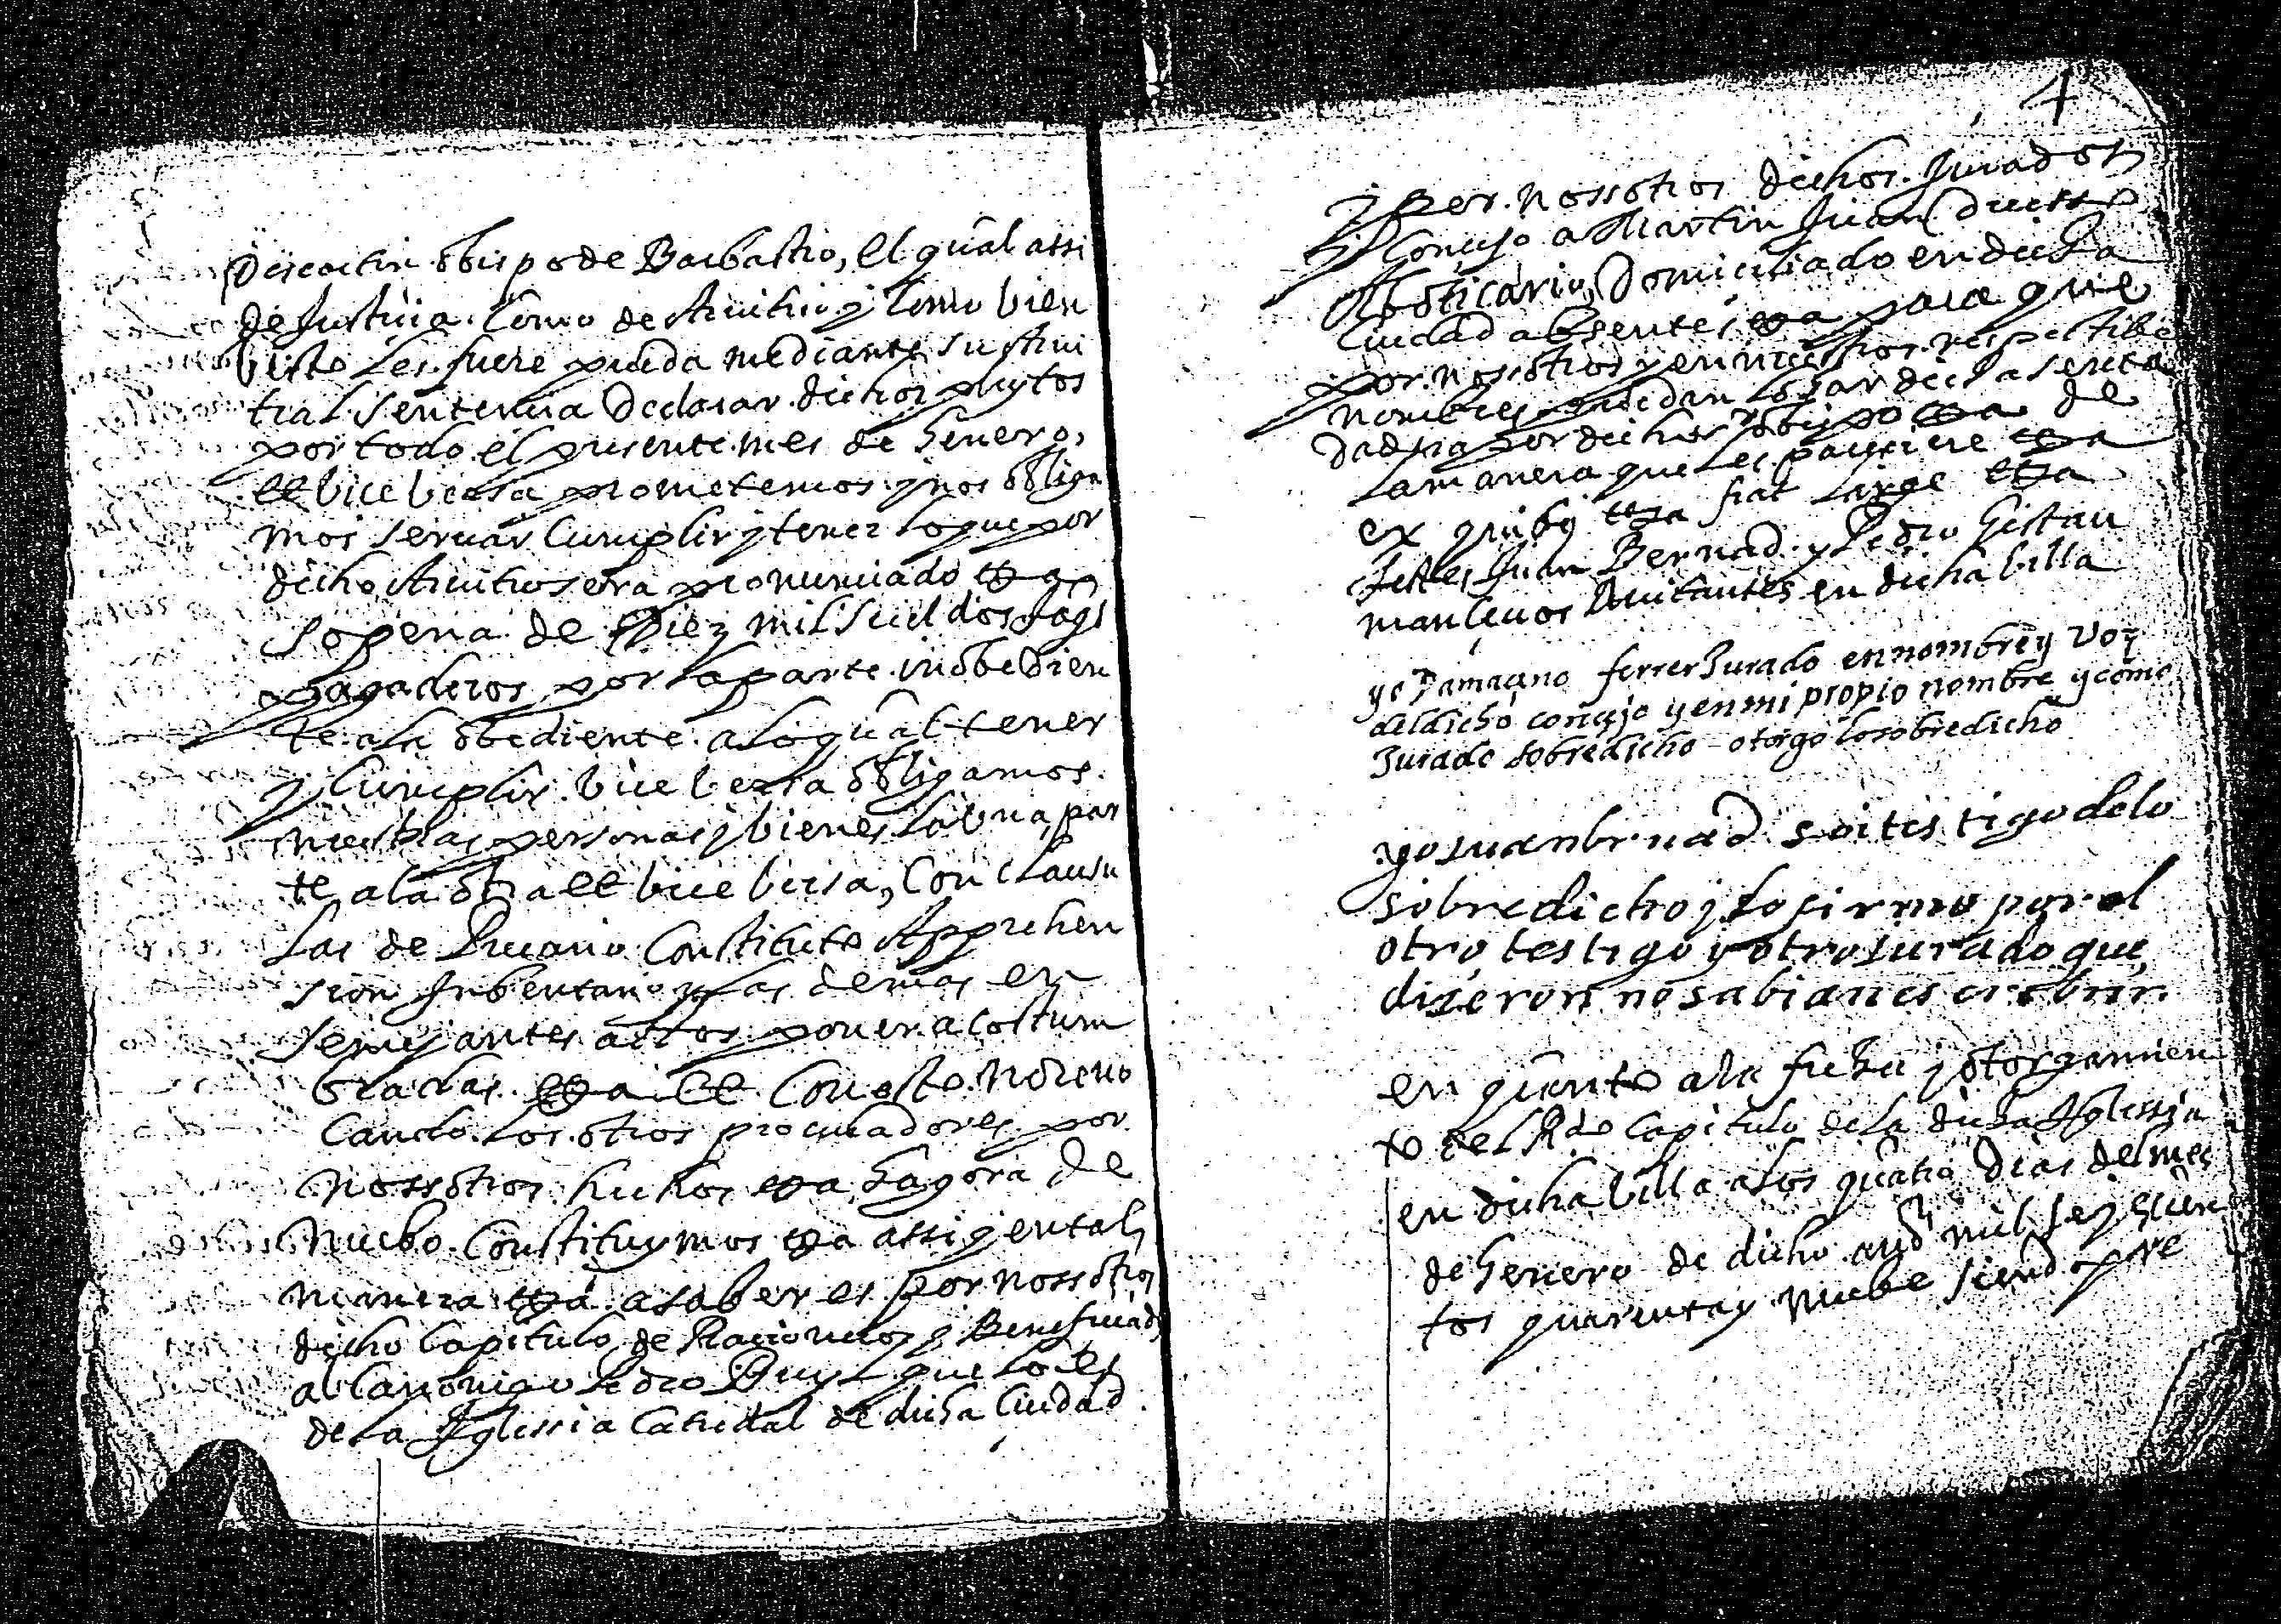 Descartin obispo de Barbastro, el qual assi
de Justicia como de Arvitrio y como bien
visto les fuere pueda mediante su Arvi
tral sentencia declarar dichos pleytos
por todo el presente mes de henero,
et vice versa prometemos y nos obliga
mos servar cumplir y tener lo que por
dicho Arvitro sera pronunciado etca
sopena de Diez mil sueldos Jaqs
pagaderos por la parte inobedien
te a la obediente a lo qual tener
y cumplir vice versa obligamos
nuestras personas y bienes la una par
te a la otra et vice versa, con clausu
las de Precario Constituto Apprehen
sion Inbentario y las demas en
semejantes actos poner acostum
bradas etca et con esto no revo
cando los otros procuradores por
nossotros hechos etca hagora de
nuebo constituymos etca assi y en tal
manera etca a saber es por nossotros
dicho Capitulo de Racioneros y Beneficiados
al Canonigo Pedro Puyl que lo es
de la Iglessia Catredal de dicha Ciudad
4
y por nossotros dichos Jurados
y Concejo a Martin Juan
Aboticario, Domiciliado en dicha
Ciudad absentes etca para que
por nossotros y en nuestros respectibe
nombres puedan loar dicha sentª
dadera por dicho obispo etca de
la manera que les pareciere etca
ex quibus etca fiat large etca
Testes Juan Bernad y Pedro Gistau
mancevos havitantes en dicha billa
yo Damaçeno ferrer Jurado en nombre y voz
del dicho conçejo y en mi propio nombre y como
Jurado sobredicho otorgo lo sobredicho
yo juan bernad soi testigo de lo
sobredicho y lo firmo por el
otro testigo y otro jurado que
dixeron no sabian escribir.
en quanto a la fecha y otorgamien
to del Rdo Capitulo de la dicha Iglessia
en dicha billa a los quatro dias del mes
de henero de dicho año mil seyscien
tos quarenta y nuebe siendo pre